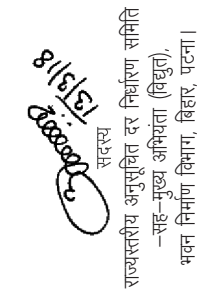 13/3/18
सदस्य
राज्यस्तरीय अनुसूचित दर निर्धारण समिति
–सह–मुख्य अभियंता (विद्युत),
भवन निर्माण विभाग, बिहार, पटना।